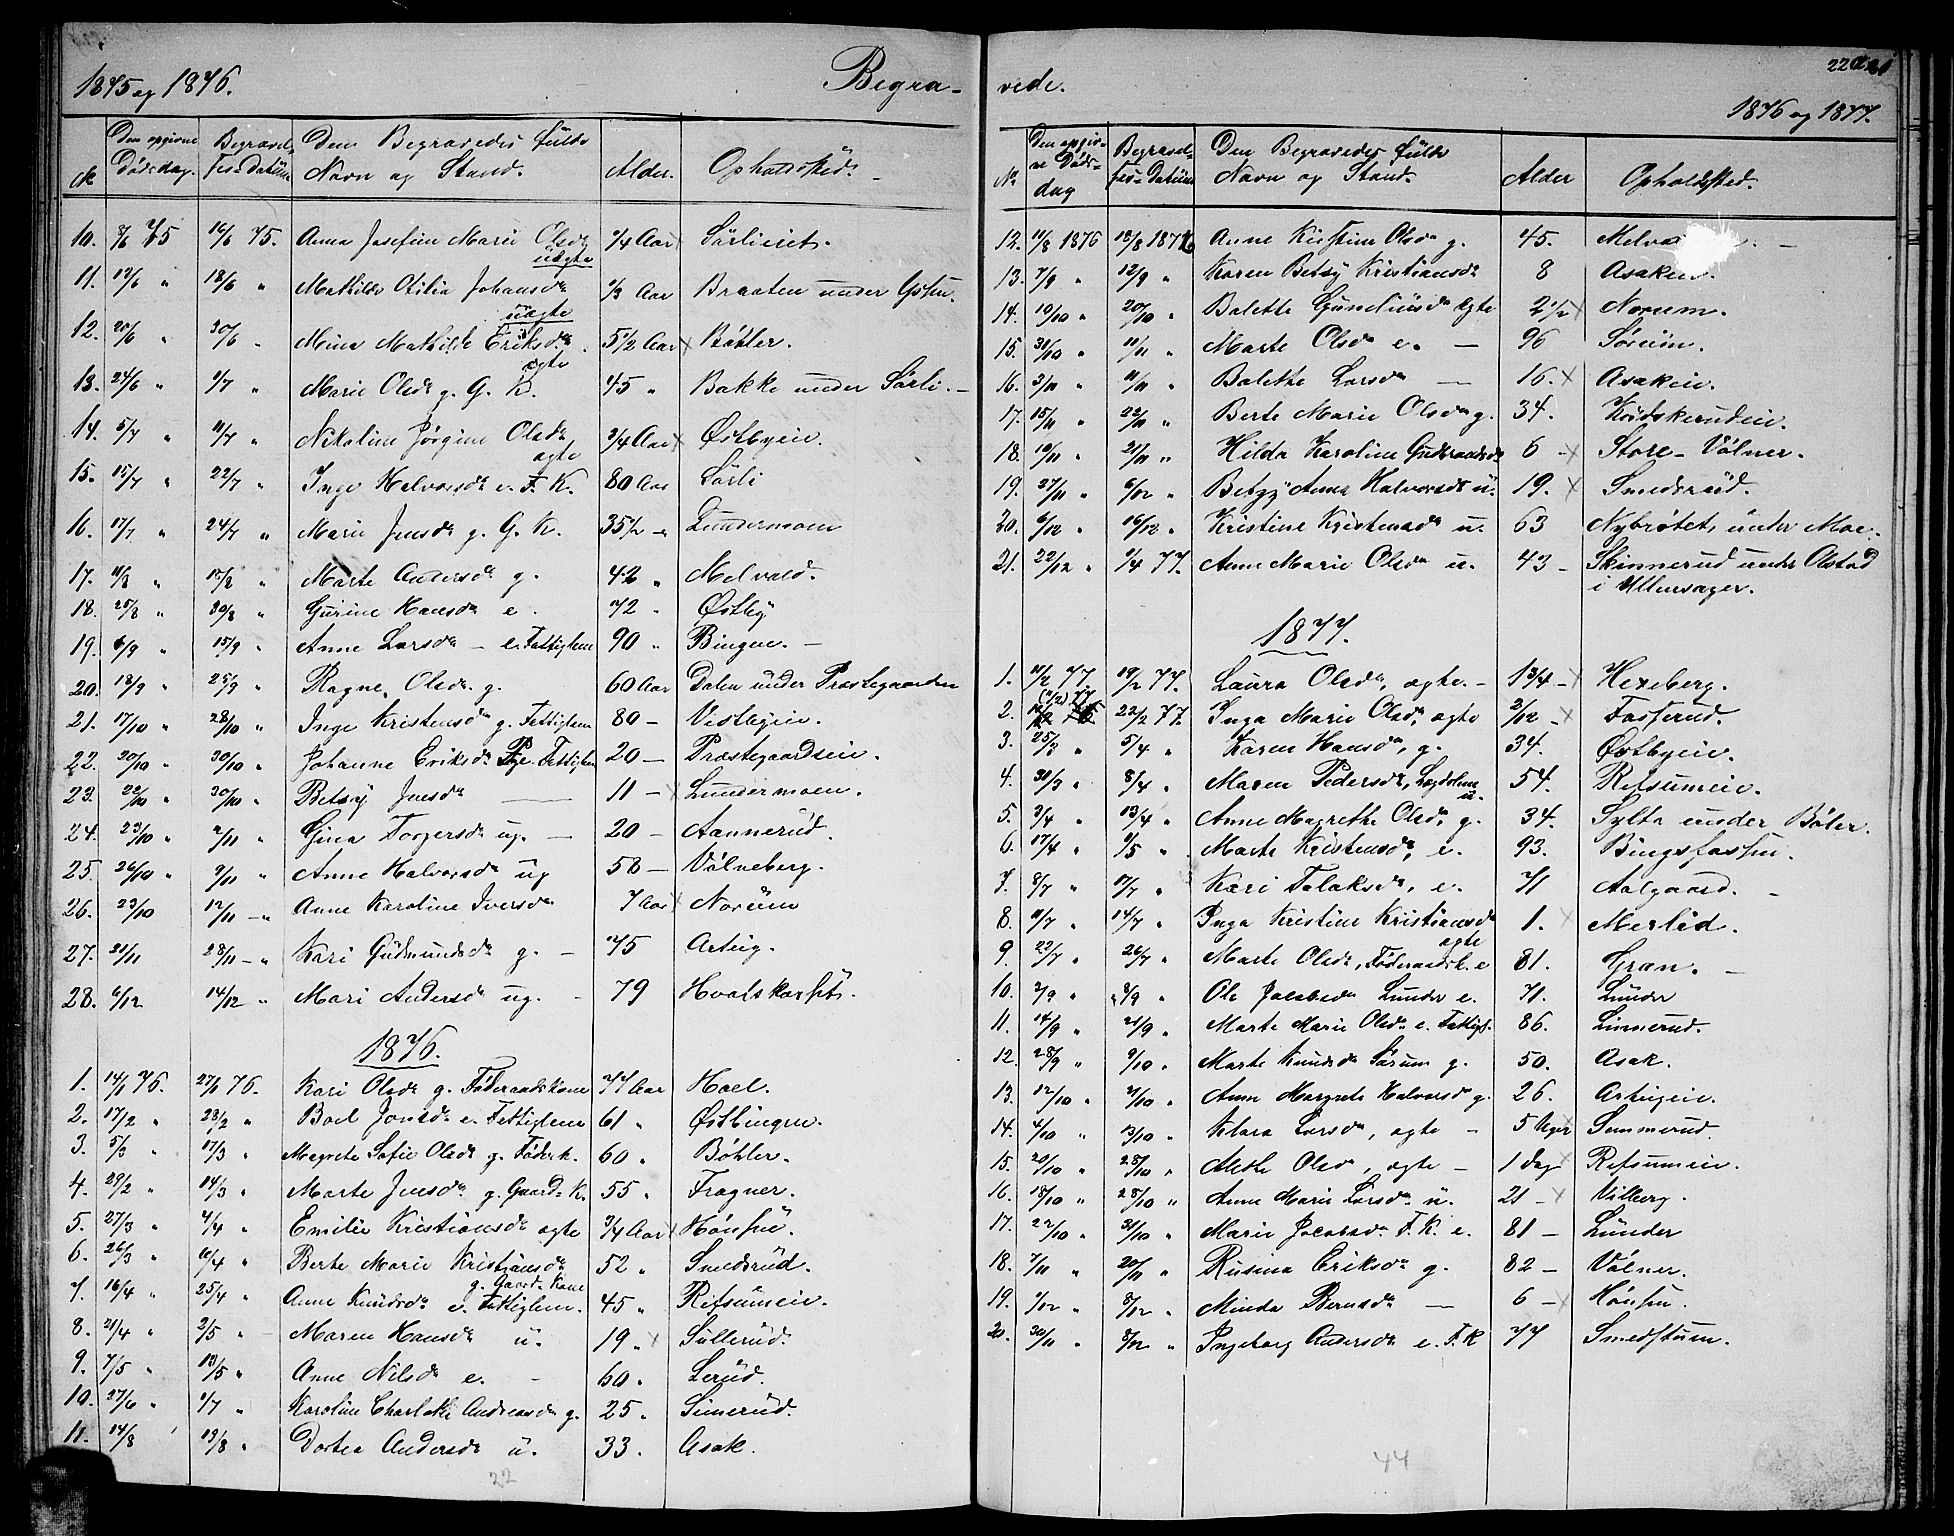 1875 og 1876.
Begra-
№ Den opgivne Dødsdag. Begravelses-Datum Den Begravedes fulde Navn og Stand. Alder. Opholdssted.
10. 8/6 75 16/6 75. Anna Josefine Marie Olsdr uægte 1/4 Aar Sörlieiet.
11. 12/6 " 18/6 " Mathilde Otilia Johansdr uægte 1/3 Aar Braaten under
12. 20/6 " 30/6 " Mina Mathilde Eriksdr. ægte 5 1/2 Aar Böhler.
13. 24/6 " 1/7 " Marie Olsdr g. G. K. 45 " Bakke under Sörli.
14. 5/7 " 11/7 " Nikoline Jörgine Olsdr ægte 3/4 Aar Østbyeie.
15. 15/7 " 22/7 " Inge Halvorsdr e. F. K. 80 Aar Sörli
16. 17/7 " 24/7 " Marie Jensdr g. G. K. 35 1/2 - Lundermoen
17. 11/8 " 18/8 " Marte Andersdr g. 42 " Melvold.
18. 25/8 " 30/8 " Gurine Hansdr e. 72 " Østby
19. 6/9 " 15/9 " Anne Larsdr - e. Fattiglem 90 " Bingen. -
20. 18/9 " 25/9 " Ragne Olsdr. g. 60 Aar Dalen under Præstegaarden
21. 17/10 " 28/10 " Inge Kristensdr g. Fattiglem 80 - Vestbyeie.
22. 20/10 " 30/10 " Johanne Eriksdr Pge. Fattiglem 20 - Præstegaardseie.
23. 22/10 " 30/10 " Betsy Jensdr 11 - Lundermoen.
24. 23/10 " 2/11 " Gina Torgersdr ug. - 20 - Aannerud.
25. 26/10 " 9/11 " Anne Halvorsdr ug 58 - Völneberg.
26. 23/10 12/11 - " Anne Karoline Iversdr 7 Aar Norum
27. 21/11 28/11 - " Kari Gudmundsdr g. - 75 Arteig.
28. 6/12 14/12 " Mari Andersdr ug. - 79
1876.
1. 14/1 76. 27/1 76. Kari Olsdr g. Föderaadskone 77 Aar Hoel.
2. 17/2 " 28/2 " Boel Jonsdr e. Fattiglem 61 " Østbingen.
3. 5/3 " 17/3 " Magrete Sofie Olsdr g. Föderk. 60 " Böhler.
4. 29/2 " 14/3 " Marte Jensdr g. Gaard-K. 55 " Fragner.
5. 27/3 " 4/4 " Emilie Kristiansdr ægte 3/4 Aar Hönsen.
6. 26/3 " 6/4 " Berte Marie Kristiansdr g. Gaard-Kone 52 " Smedsrud.
7. 16/4 " 25/4 " Anne Knudsdr e. Fattiglem. 45 " Refsumeie.
8. 21/4 " 2/5 " Maren Hansdr u. 19 " Sullerud.
9. 7/5 " 13/5 " Anne Nilsdr e. - 60 " Lerud.
10. 27/6 " 1/7 " Karoline Charlotte Andreasdr g. 25 " Simerud.
11. 14/8 19/8 " Dortea Andersdr u. 33. Asak.
22
vede.
22
1876 og 1877.
№ Den opgivne Døds-dag Begravelses-Datum Den Begravedes fulde Navn og Stand. Alder Opholdssted.
12. 11/8 1876 18/8 1876 Anne Kirstine Olsdr g. 45. Melvo
13. 7/9 " 12/9 " Karen Betsy Kristiansdr 8 Asakeie.
14. 10/10 " 20/10 " Bolette Gundersdr ægte 2 1/2 Norum.
15. 31/10 " 11/11 " Marte Olsdr e. - 96 Sörum.
16. 3/11 " 11/11 " Bolette Larsdr - 16. Asakeie.
17. 15/11 " 22/11 " Berte Marie Olsdr g. 34.
18. 10/11 " 21/11 " Hilda Karoline Gudbrandsdr 6 - Store-Völner.
19. 27/11 " 6/12 " Betzy Anna Halvorsdr u. 19. Smedsrud.
20. 6/12 " 16/12 " Kristine Kristensdr u. 63 Nybrötet, under Moe.
21. 22/12 " 1/4 77. Anne Marie Olsdr u. 43 - Skinnerud under Olstad i Ullensager.
1877.
1. 11/2 77. 19/2 77. Laura Olsdr, ægte. - 1 3/4 - Hexeberg.
2. (11/2) 77 22/2 77. Inga Marie Olsdr ægte 2/12 - Fosserud.
3. 25/3 " 5/4 " Karen Hansdr, g. 34. Østbyeie.
4. 31/3 " 8/4 " Maren Pedersdr, Lægdslem u. 54. Refsumeie.
5. 3/4 " 13/4 " Anne Magrethe Olsdr g. 34. Sylta under Böler.
6. 17/4 " 1/5 " Marte Kristensdr, e. 93. Bingsfossen.
7. 8/7 " 17/7 " Kari Tolaksdr, e. 71 Aalgaard. -
8. 11/7 " 14/7 " Inga Kristine Kristiansdr ægte 1. Merlid.
9. 22/7 " 26/7 " Marte Olsdr, Föderaadsk. e 81. Gran. -
10. 2/9 " 8/9 " Ole Jacobsdr Lunder e. 71. Lunder
11. 14/9 " 21/9 " Marte Marie Olsdr e. Fattigl. 86. Linnerud.
12. 28/9 " 9/10 " Marte Knudsdr Sörum g. 50. Asak.
13. 12/10 " 21/10 " Anne Margrete Halvorsd g. 26. Arteigeie.
14. 4/10 " 13/10 " Klara Larsdr, ægte - 5 Uger Simmerud.
15. 20/10 " 28/10 " Alethe Olsdr, ægte - 1 Dag Refsumeie.
16. 18/10 " 28/10 " Anne Marie Larsdr u. 21 - Vilberg.
17. 22/10 " 31/10 " Marie Jacobsdr F. K. e. 81 - Lunder
18. 7/11 " 20/11 " Rusina Eriksdr g. 82 - Völner.
19. 1/12 " 8/12 " Minda Berntsdr - 6 - Hönsen.
20. 30/11 " 8/12 " Ingeborg Andersdr e. F. K 77 Smedstuen.
44